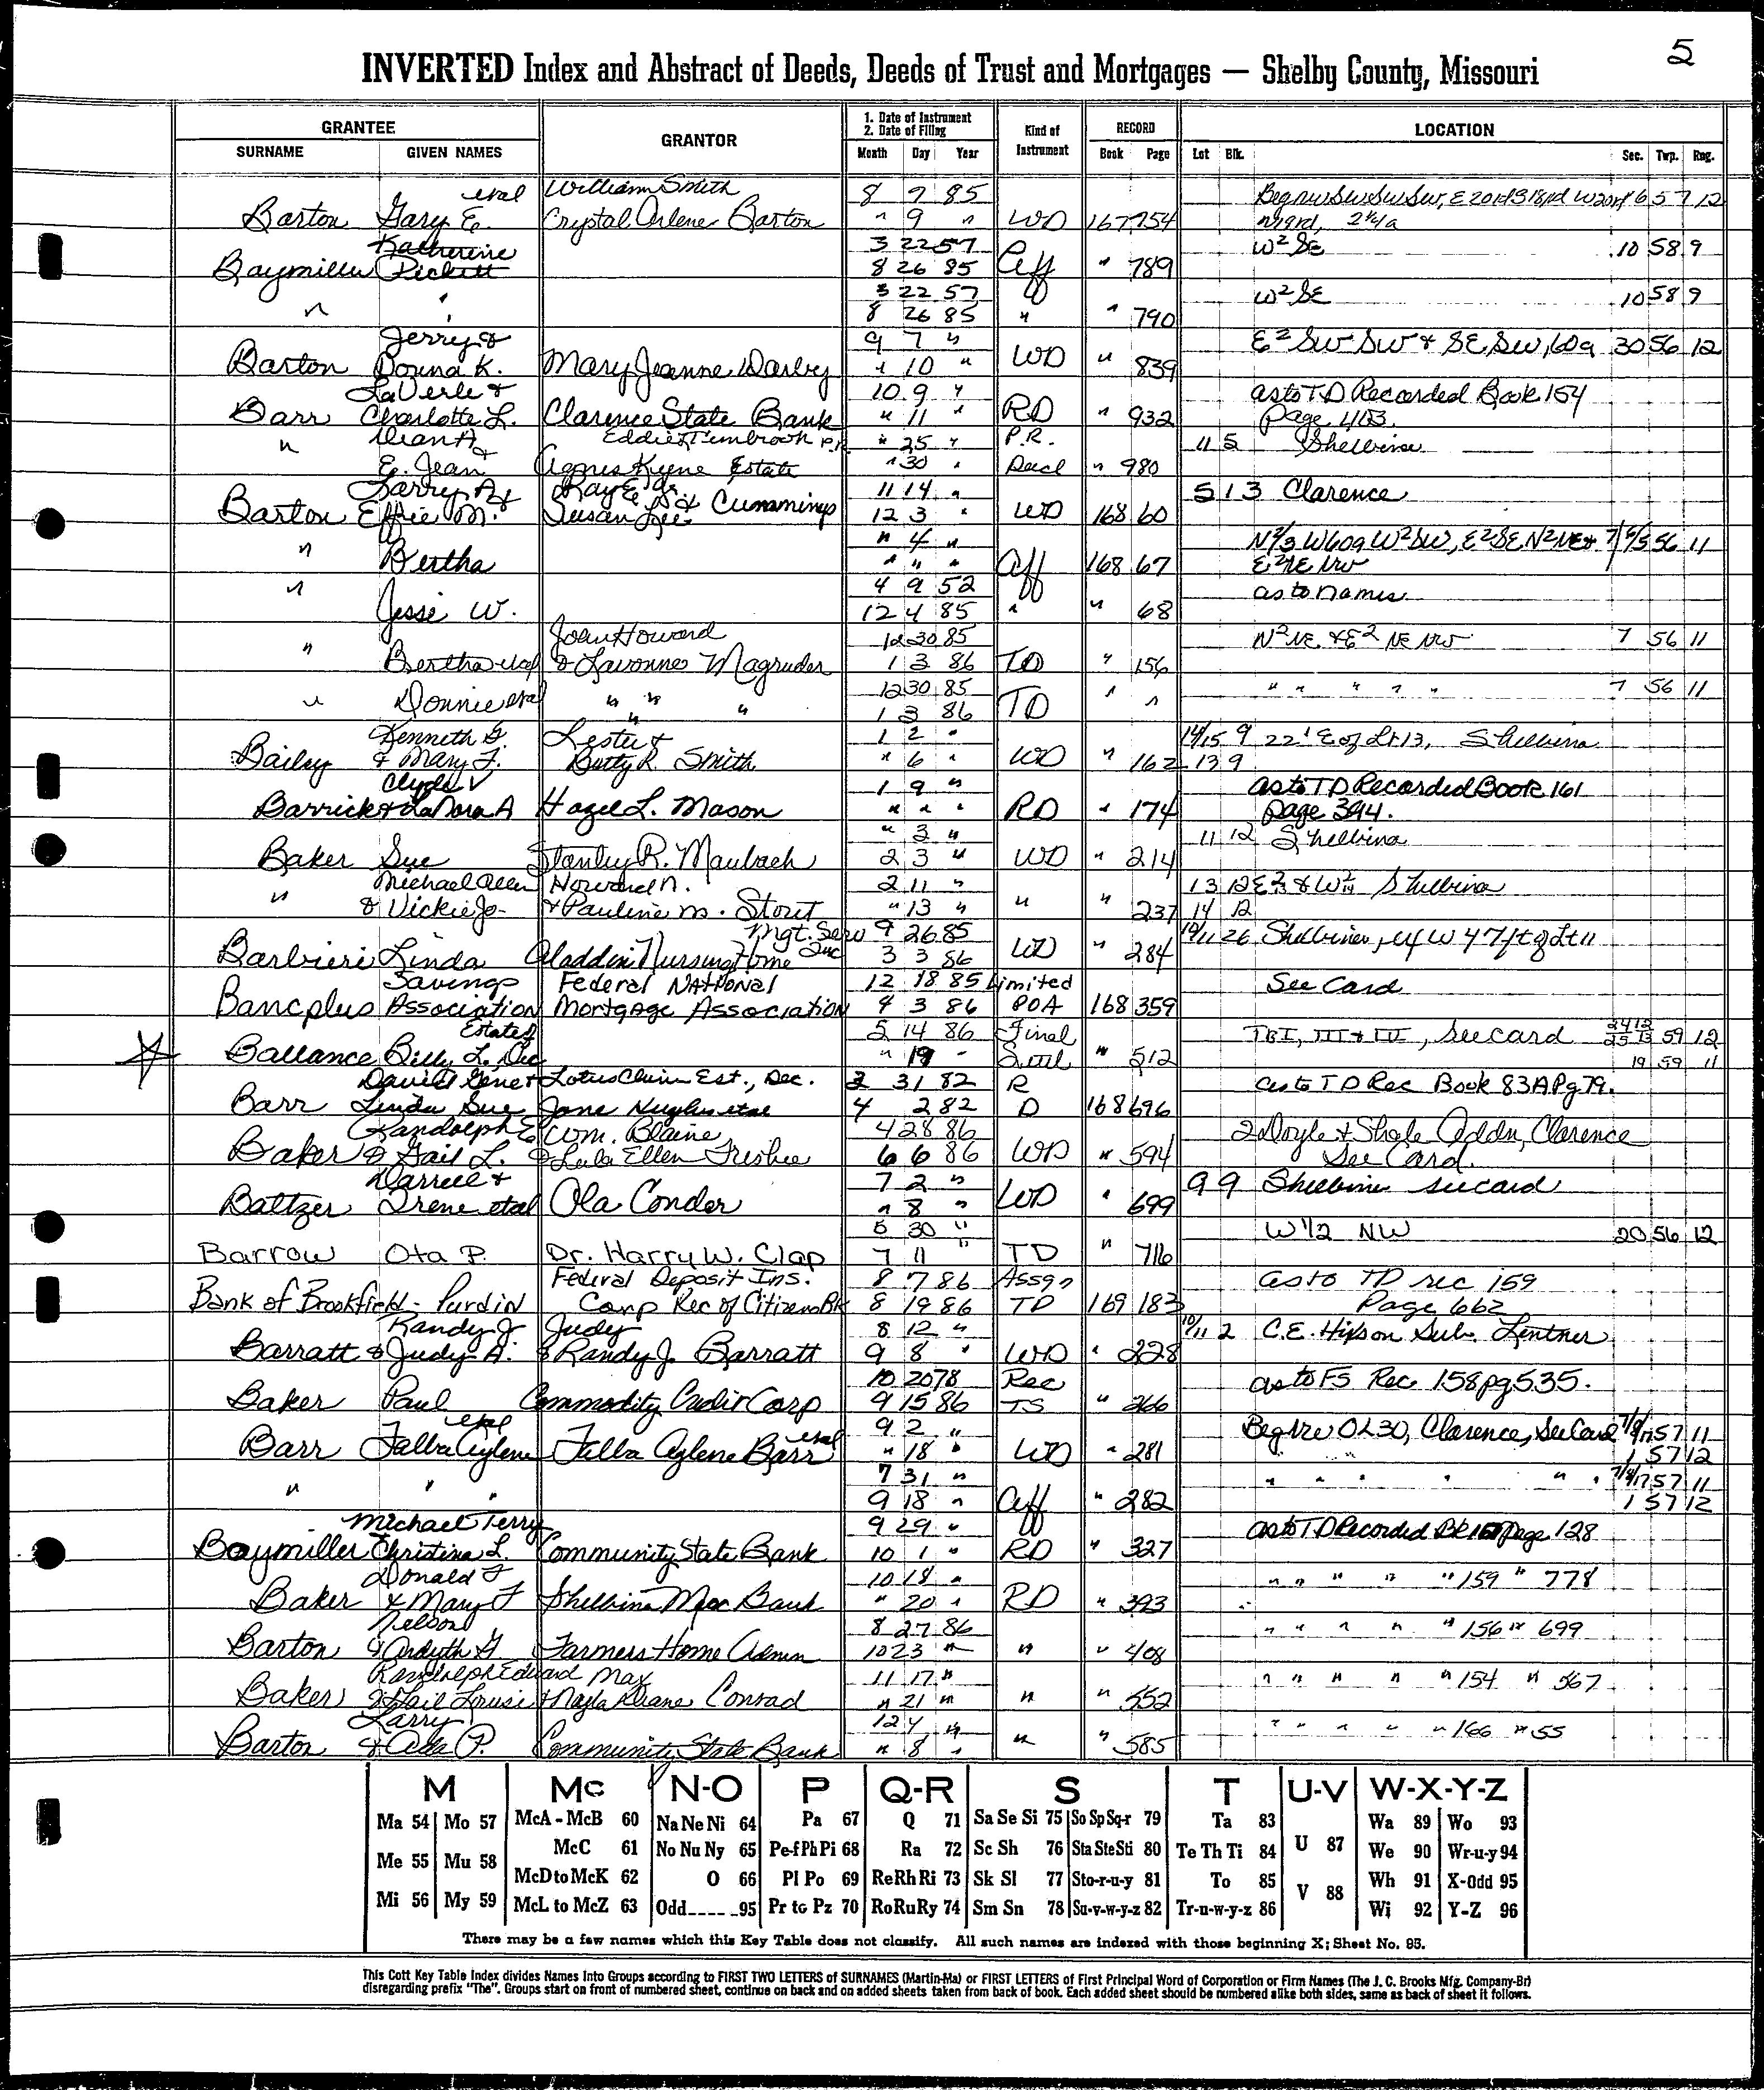 5
INVERTED Index and Abstract of Deeds, Deeds of Trust and Mortgages — Shelby County, Missouri
GRANTEE GRANTOR 1. Date of Instrument 2. Date of Filing Kind of Instrument RECORD LOCATION
SURNAME GIVEN NAMES Month Day Year Book Page Lot Blk. Sec. Twp. Rng.
etal William Smith 8 9 85 Beg nw Sw Sw Sw, E 20rd S 18rd W 20rd 6 57 12
Barton Gary E. Crystal Arlene Barton " 9 " WD 167 754 N 18rd, 2 1/4a
Katherine 3 22 57 W² SE 10 58 9
Baymiller Pickett 8 26 85 Aff " 789
3 22 57 W² SE 10 58 9
" " 8 26 85 " " 790
Jerry & 9 7 " E² SW SW & SE SW, 60a 30 56 12
Barton Donna K. Mary Jeanne Darby " 10 " WD " 839
LaVerle & 10 9 " as to TD Recorded Book 154
Barr Charlotte L. Clarence State Bank " 11 " RD " 932 page 453.
" Dean A & Eddie Timbrook P.R. " 25 " P.R. 11 5 Shelbina
E. Jean Agnes Kyne Estate " 30 " Deed " 980
Larry A & Ray E. Jr. & 11 14 " 5 13 Clarence
Barton Effie M. Susan Lee Cummings 12 3 " WD 168 60
" " 4 " N 2/3 W60a W² SW, E² SE N² NE & 7 6/5 56 11
Bertha " " " Aff 168 67 E² NE NW
" 4 9 52 as to names
Jesse W. 12 4 85 " " 68
John Howard 12 30 85 N² NE & E² NE NW 7 56 11
" Bertha etal & Lavonne Magruder 1 3 86 TD " 156
" Donnie etal " " " 12 30 85 TD " " " " " " " 7 56 11
1 3 86
Kenneth G. Lester & 1 2 " 14/15 9 22' E of Lt 13, Shelbina
Bailey & Mary F. Betty R. Smith " 6 " WD " 162 13 9
Clyde V 1 9 " as to TD Recorded Book 161
Barrick & LaNora A Hazel L. Mason " " " RD " 174 page 394.
" 3 " 11 12 Shelbina
Baker Sue Stanley R. Maubach 2 3 " WD " 214
Michael Allen Howard N. 2 11 " 13 12 E 2/3 & W Shelbina
" & Vickie Jo & Pauline M. Stout " 13 " " " 237 14 12
Mgt. Serv 9 26 85 10/11 26 Shelbina, W 47ft of Lt 11
Barbieri Linda Aladdin Nursing Home Inc 3 3 86 WD " 284
Savings Federal National 12 18 85 Limited See Card
Bancplus Association Mortgage Association 4 3 86 POA 168 359
Estate of 5 14 86 Final TR I, III & IV, see card 24 12 25 13 59 12
Ballance Billy L. Dec " 19 " Settl " 512 19 59 11
David Gene & Lotus Chinn Est., Dec. 3 31 82 R as to TD Rec Book 83A Pg 79.
Barr Linda Sue Jane Hughes etal 4 2 82 D 168 696
Randolph E Wm. Blaine 4 28 86 2 Doyle & Shale Addn, Clarence
Baker & Gail L. & Lula Ellen Frisbie 6 6 86 WD " 594 See Card.
Darrell & 7 2 " 9 9 Shelbina see card
Baltzer Irene etal Ola Conder " 8 " WD " 699
5 30 " W 1/2 NW 20 56 12
Barrow Ota P. Dr. Harry W. Clap 7 11 " TD " 716
Federal Deposit Ins. 8 7 86 Assgn as to TD rec 159
Bank of Brookfield - Purdin Corp Rec of Citizens Bk 8 19 86 TD 169 183 Page 662
Randy J. Judy 8 12 " 10/11 2 C.E. Hixson Sub. Lentner
Barratt & Judy A. & Randy J. Barratt 9 8 " WD " 228
10 20 78 Rec as to FS Rec 158 pg 535.
Baker Paul Commodity Credit Corp 9 15 86 TS " 266
etal 9 2 " Beg NE OL 30, Clarence, See Card 7/8/17 57 11
Barr Falba Aylene Falba Aylene Barr etal " 18 " WD " 281 1 57 12
7 31 " " " " " " " 7/8/17 57 11
" " " 9 18 " Aff " 282 1 57 12
Michael Terry 9 29 " as to TD Recorded Bk page 128
Baymiller Christina L. Community State Bank 10 1 " RD " 327
Donald F 10 18 " " " " " " 159 " 778
Baker & Mary F Shelbina Merc Bank " 20 " RD " 393
Nelson 8 27 86 " " " " " 156 " 699
Barton & Ardyth G Farmers Home Admn 10 23 " " " 408
Randolph Edward Max 11 17 " " " " " " 154 " 567
Baker & Gail Louise & Nayla Deane Conrad " 21 " " " 552
Larry 12 4 " " " " " " 166 " 55
Barton & Ada P. Community State Bank " 8 " " " 585
M Mc N-O P Q-R S T U-V W-X-Y-Z
Ma 54 Mo 57 McA - McB 60 Na Ne Ni 64 Pa 67 Q 71 Sa Se Si 75 So Sp Sq-r 79 Ta 83 Wa 89 Wo 93
McC 61 No Nu Ny 65 Pe-f Ph Pi 68 Ra 72 Sc Sh 76 Sta Ste Sti 80 Te Th Ti 84 U 87 We 90 Wr-u-y 94
Me 55 Mu 58 McD to McK 62 O 66 Pl Po 69 Re Rh Ri 73 Sk Sl 77 Sto-r-u-y 81 To 85 Wh 91 X-Odd 95
Mi 56 My 59 McL to McZ 63 Odd 95 Pr to Pz 70 Ro Ru Ry 74 Sm Sn 78 Su-v-w-y-z 82 Tr-u-w-y-z 86 V 88 Wi 92 Y-Z 96
There may be a few names which this Key Table does not classify. All such names are indexed with those beginning X; Sheet No. 95.
This Cott Key Table Index divides Names Into Groups according to FIRST TWO LETTERS of SURNAMES (Martin-Ma) or FIRST LETTERS of First Principal Word of Corporation or Firm Names (The J. C. Brooks Mfg. Company-Br)
disregarding prefix "The". Groups start on front of numbered sheet, continue on back and on added sheets taken from back of book. Each added sheet should be numbered alike both sides, same as back of sheet it follows.